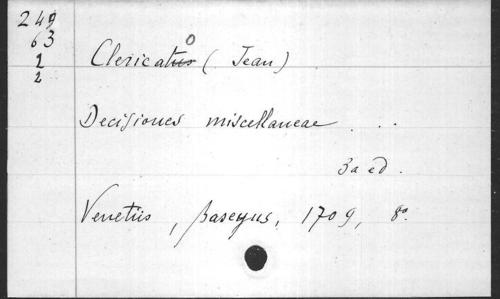 249
63
1
2
Clericato (Jean)
Decisiones miscellaneae . . .
3a ed.
Venetiis, Baseyus, 1709, 8o.